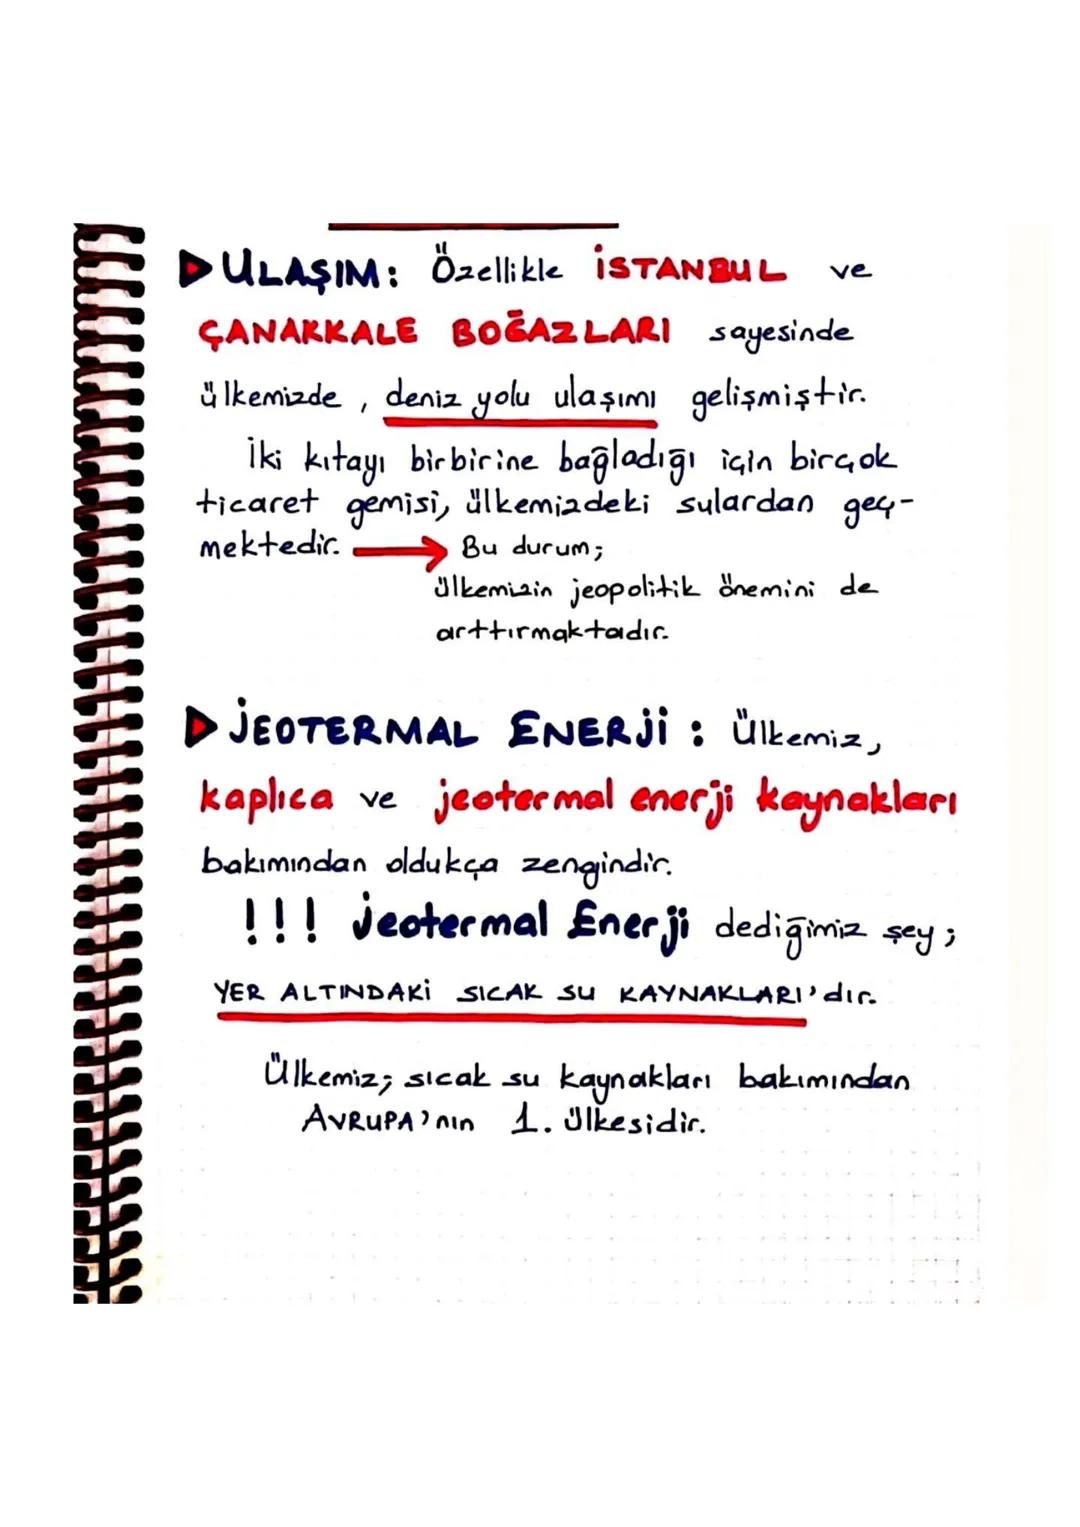 ULAŞIM: Özellikle İSTANBUL ve
ÇANAKKALE BOĞAZLARI sayesinde
ülkemizde, deniz yolu ulaşımı gelişmiştir.
İki kıtayı birbirine bağladığı için birçok
ticaret gemisi, ülkemizdeki sulardan geç-
mektedir. → Bu durum;
ülkemizin jeopolitik önemini de
arttırmaktadır.
JEOTERMAL ENERJİ : Ülkemiz,
kaplıca ve jeotermal enerji kaynakları
bakımından oldukça zengindir.
!!! Jeotermal Enerji dediğimiz şey;
YER ALTINDAKİ SICAK SU KAYNAKLARI'dır.
Ülkemiz; sıcak su kaynakları bakımından
AVRUPA'nın 1. ülkesidir.